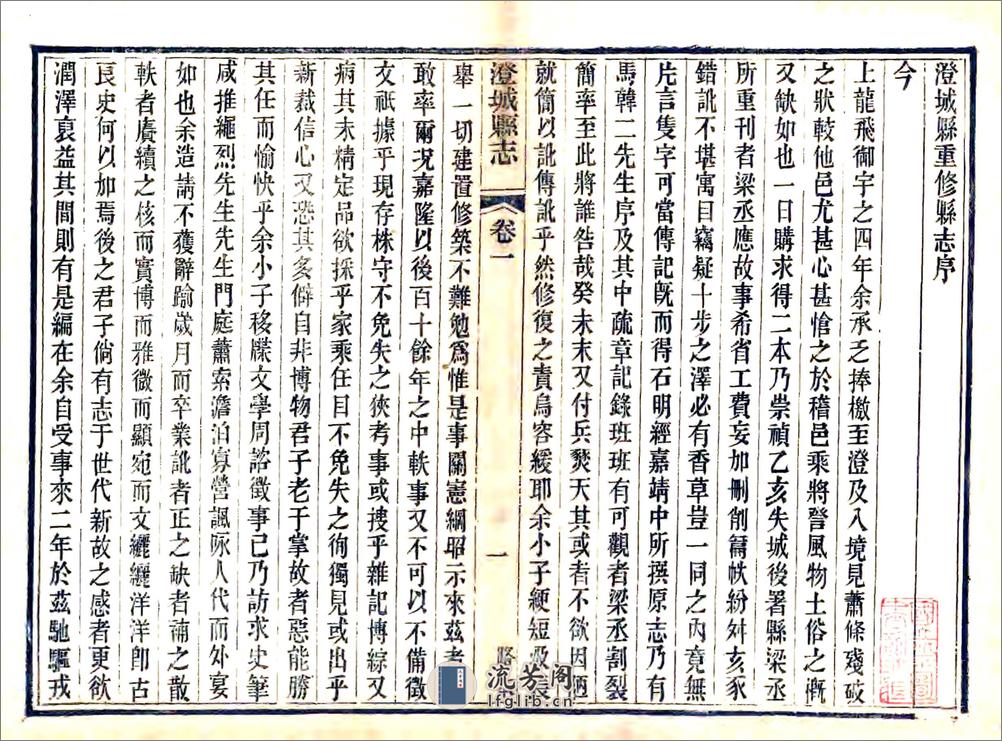 澄城縣重修縣志序
今
上龍飛御宇之四年余承乏捧檄至澄及入境見蕭條殘破
之狀較他邑尤甚心甚愴之於稽邑乘將詧風物土俗之槪
又缺如也一日購求得二本乃崇禎乙亥失城後署縣梁丞
所重刊者梁丞應故事希省工費妄加刪削篇帙紛舛亥豕
錯訛不堪寓目竊疑十步之澤必有香草豈一同之內竟無
片言隻字可當傳記旣而得石明經嘉靖中所撰原志乃有
馬韓二先生序及其中疏章記錄班班有可觀者梁丞割裂
簡率至此將誰咎哉癸未末又付兵燹天其或者不欲因陋
就簡以訛傳訛乎然修復之責烏容緩耶余小子綆短汲長
澄城縣志
卷一
一
舉一切建置修築不難勉爲惟是事關憲綱昭示來茲者
敢率爾况嘉隆以後百十餘年之中軼事又不可以不備徵
文祇據乎現存株守不免失之狹考事或摉乎雜記博綜又
病其未精定品欲採乎家乘任目不免失之徇獨見或出乎
新裁信心又恐其多僻自非博物君子老于掌故者惡能勝
其任而愉快乎余小子移牒文學周諮徵事己乃訪求史筆
咸推繩烈先生先生門庭蕭索澹泊寡營諷咏人代而外宴
如也余造請不獲辭踰歲月而卒業訛者正之缺者補之散
軼者賡續之核而實博而雅微而顯宛而文纚纚洋洋卽古
良史何以如焉後之君子倘有志于世代新故之感者更欲
潤澤裒益其間則有是編在余自受事來二年於茲馳驅戎
流芳阁
lfglib.cn